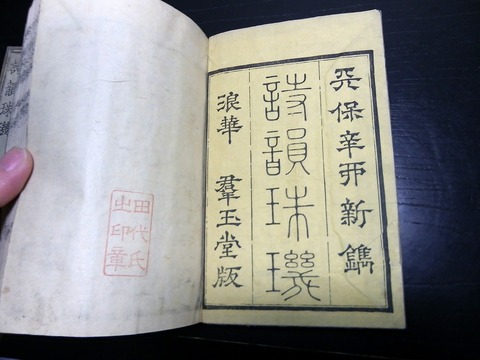 天保辛丑新鐫
詩韻珠璣
浪華 羣玉堂版
田代氏
之印章
詩韻珠璣